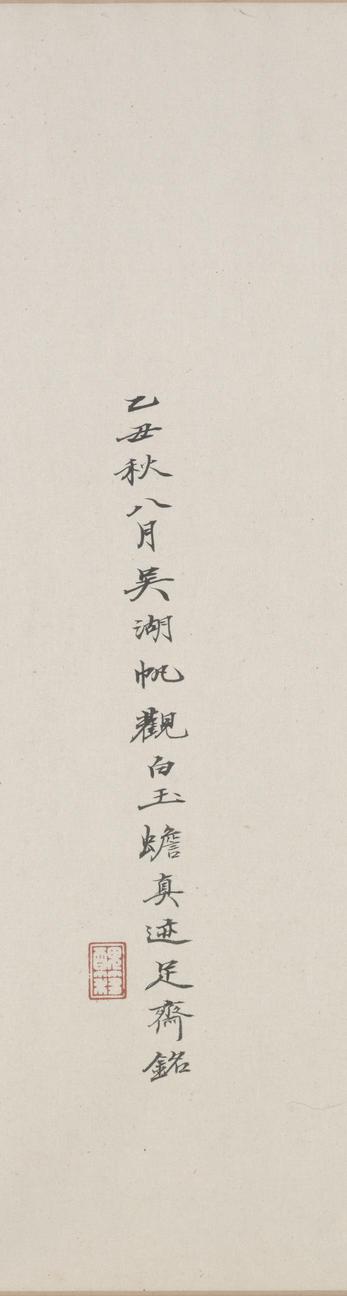 乙丑秋八月吳湖帆觀白玉蟾真迹足齋銘